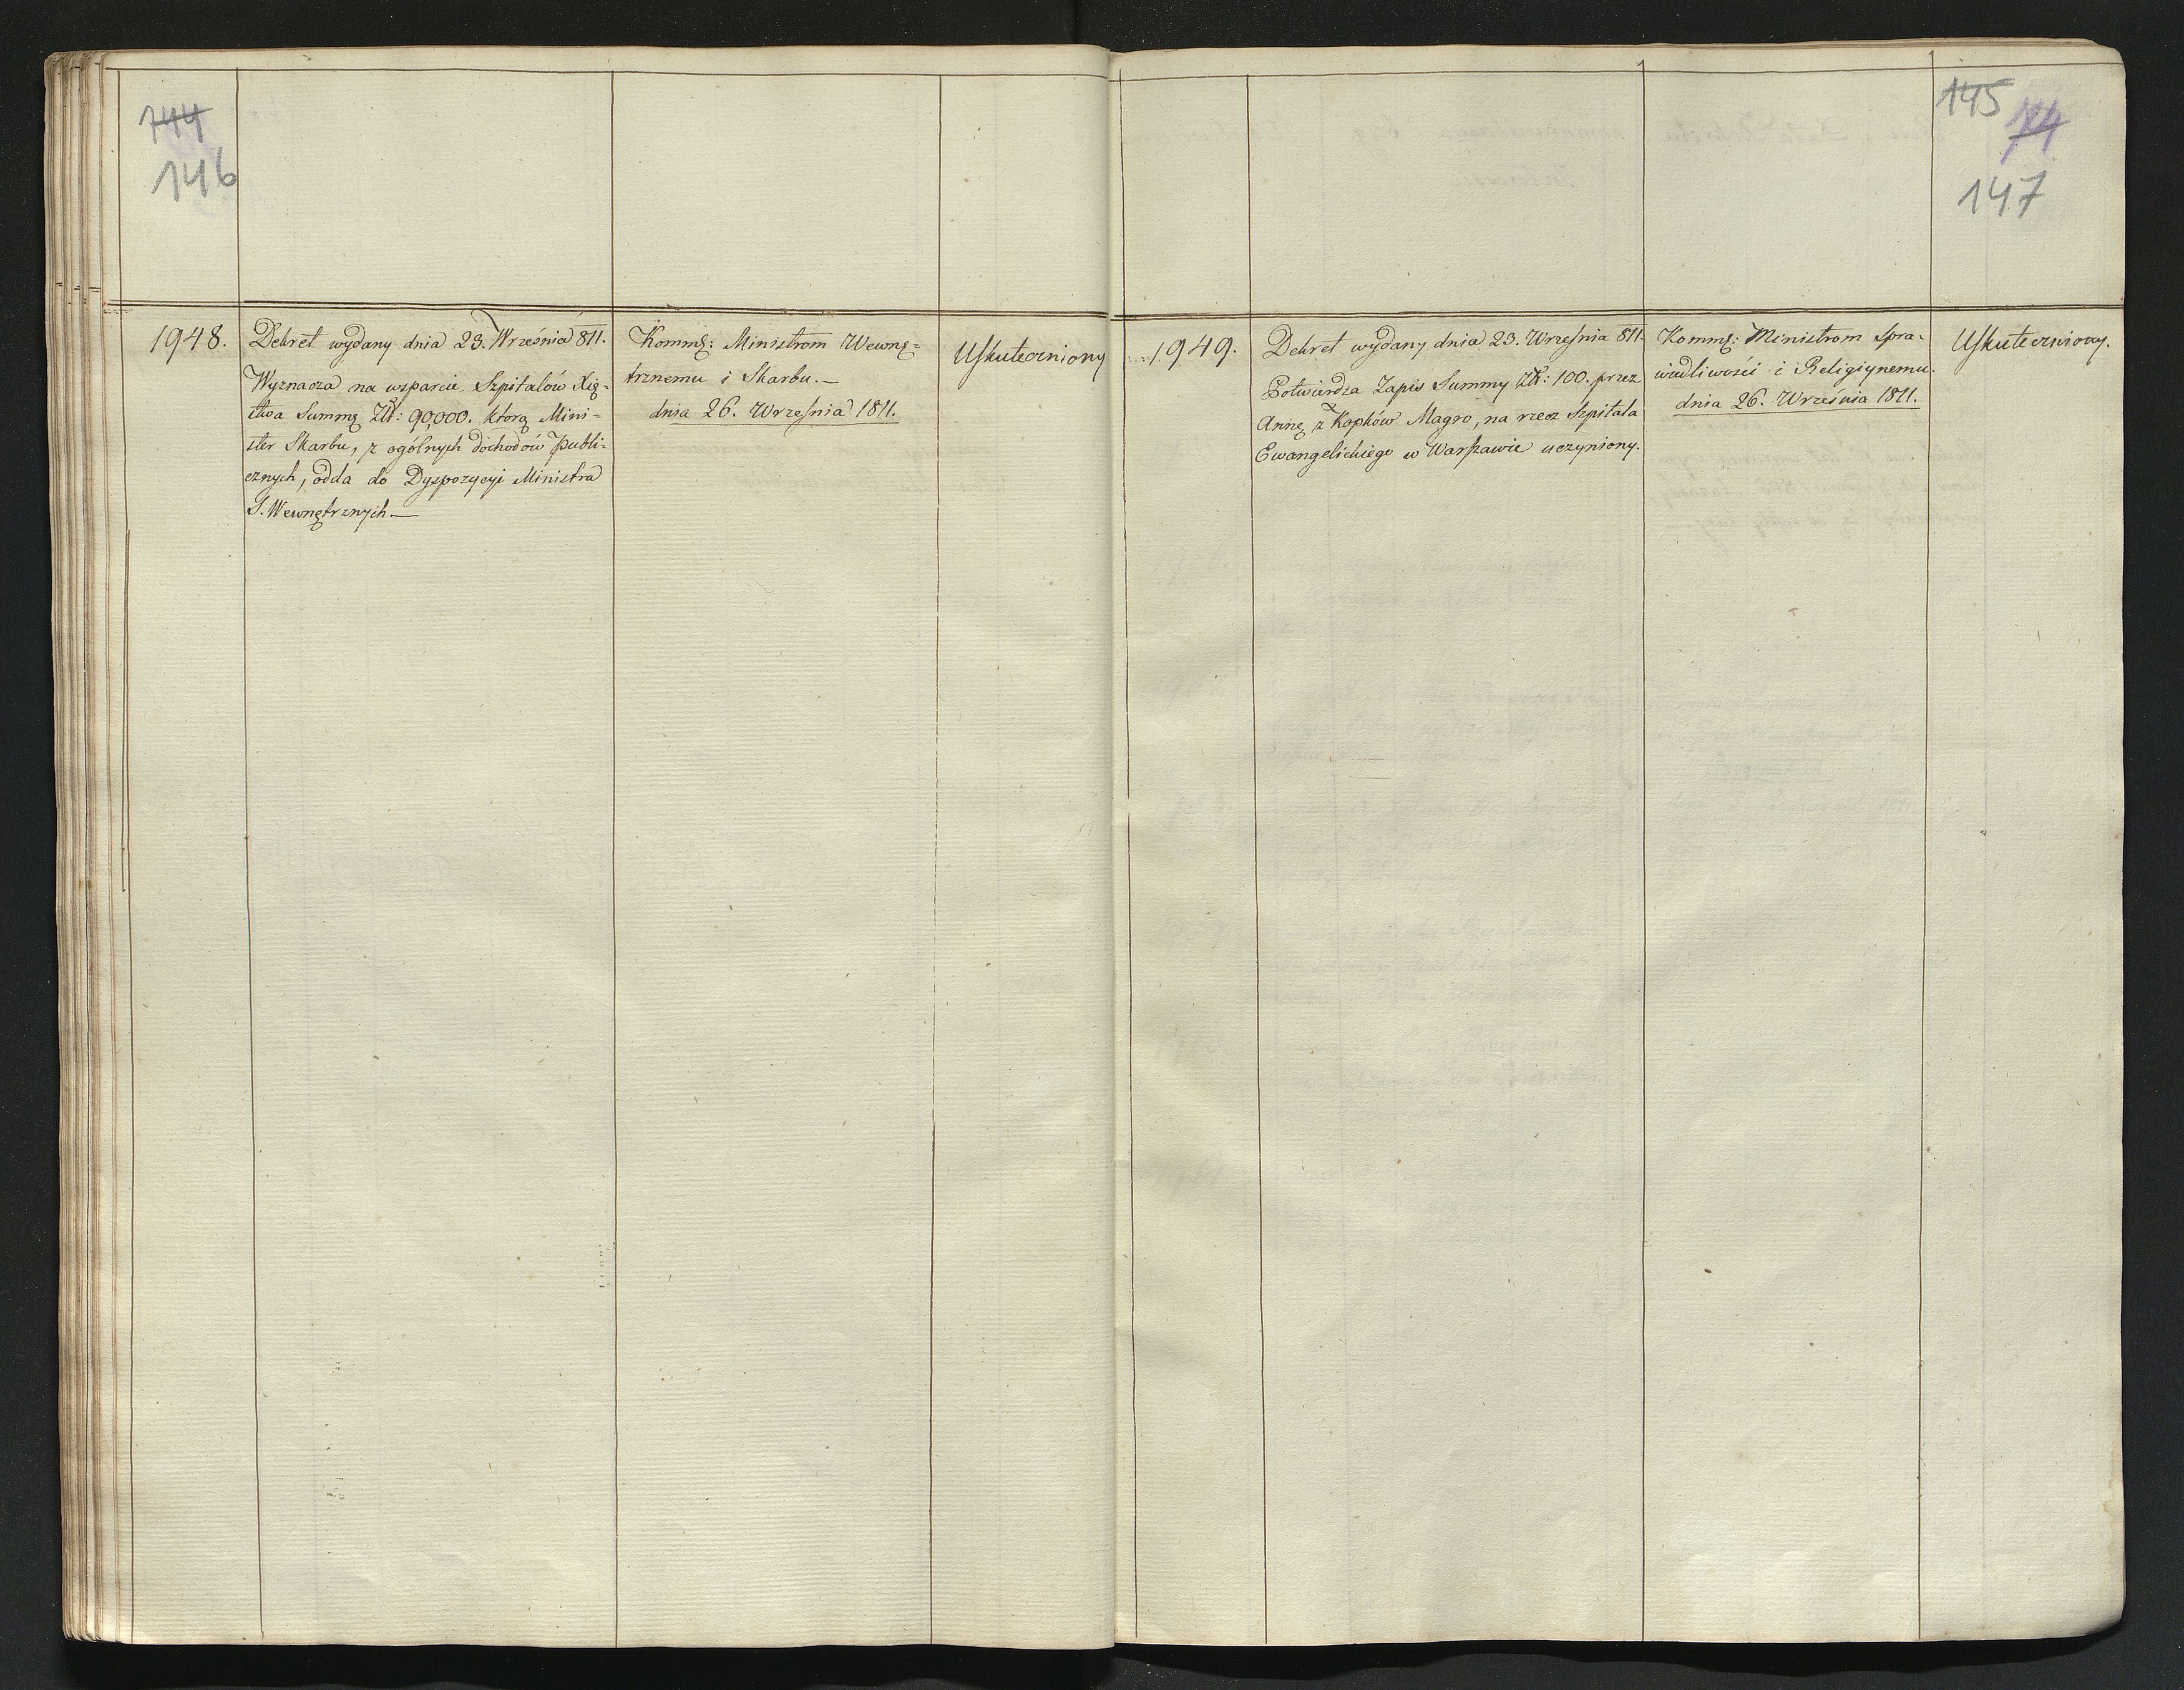 144
146
1948.
Dekret wydany dnia 23. Września 811.
Wyznacza na wsparcie Szpitalów Xię-
stwa Summę Złł: 90,000. ktorą Mini-
ster Skarbu, z ogólnych dochodów publi-
cznych, odda do Dyspozycyi Ministra
S. Wewnętrznych —
Kommę: Ministrom Wewnę-
trznemu i Skarbu. —
dnia 26. Września 1811.
Uskuteczniony
145
74
147
1949.
Dekret wydany dnia 23. Września 811.
Potwierdza Zapis Summy Złł: 100. przez
Annę z Kopków Magro, na rzecz Szpitala
Ewangelickiego w Warszawie uczyniony.
Kommę: Ministrom Spra-
wiedliwości i Religiynemu.
dnia 26. Września 1811.
Uskuteczniony.